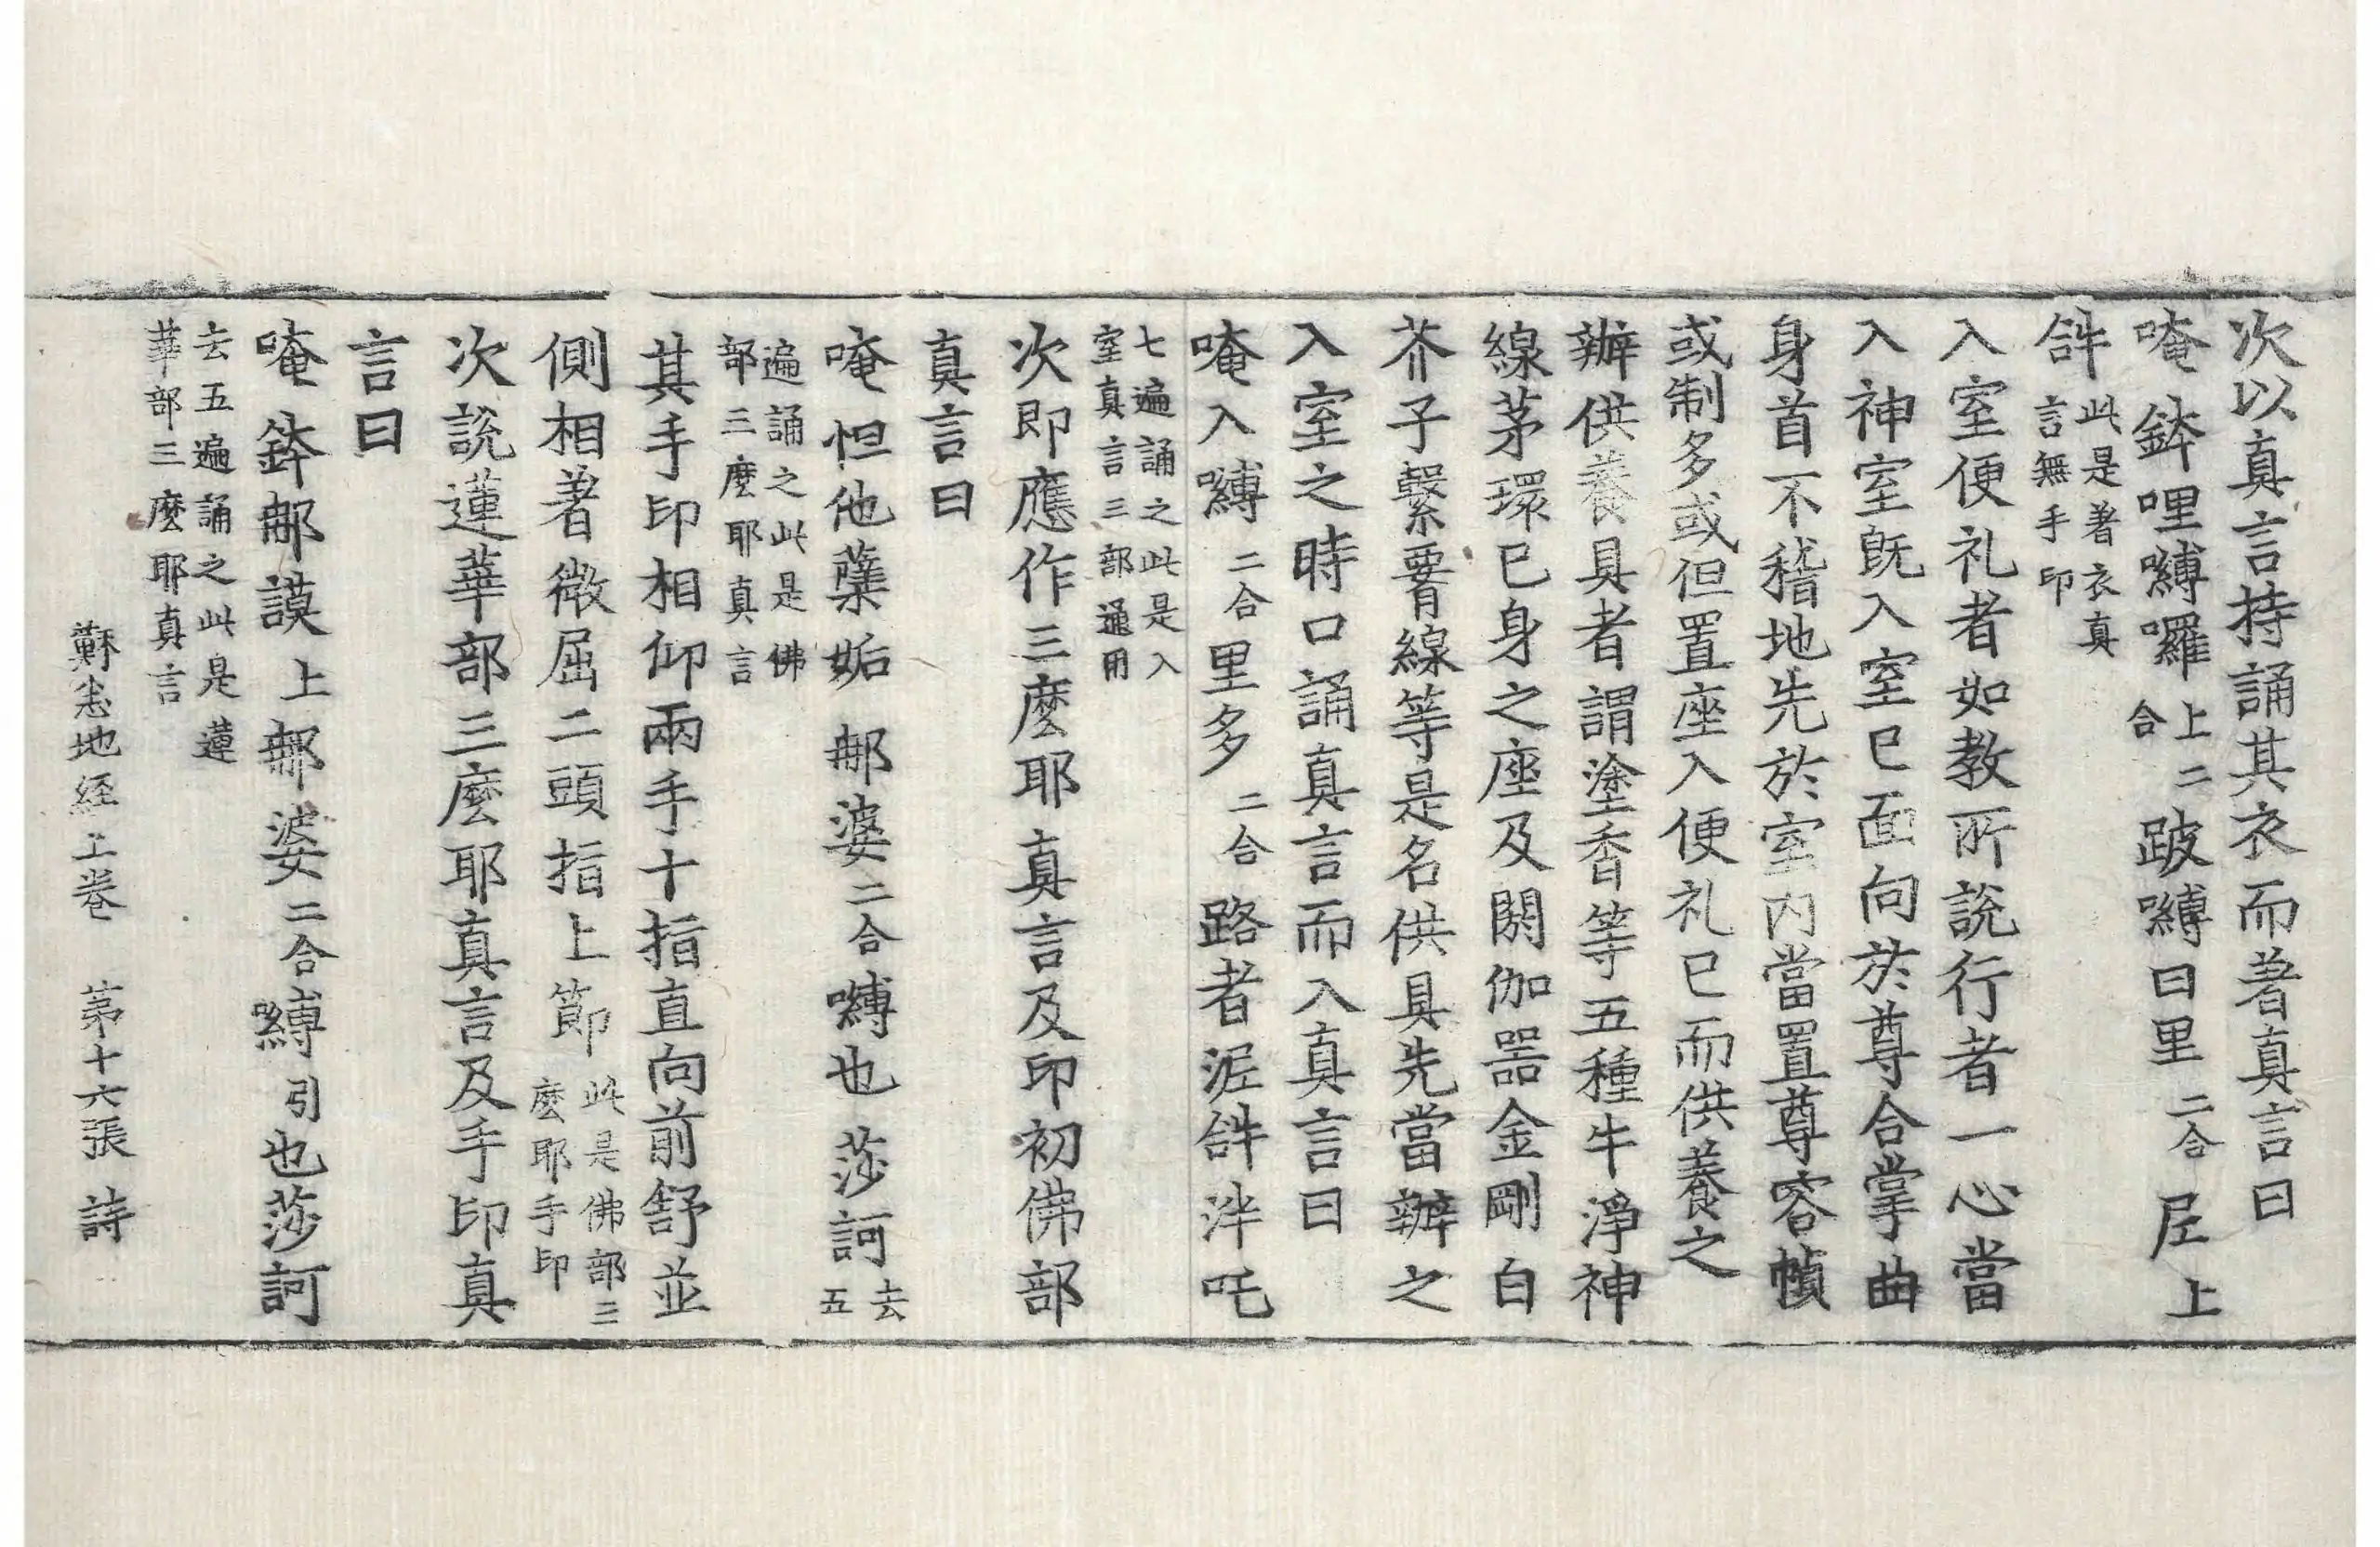 次以真言持誦其衣而著真言曰
唵鉢哩嚩囉上二合跛嚩曰里二合㞐上
𤙖此是著衣真言無手印
入室便礼者如教所說行者一心當
入神室既入室已面向於尊合掌曲
身首不稽地先於室内當置尊容幀
或制多或但置座入便礼已而供養之
辦供養具者謂塗香等五種牛淨神
線茅環已身之座及閼伽器金剛白
芥子繫䩠線等是名供具先當辦之
入室之時口誦真言而入真言曰
唵入嚩二合里多二合路者泥𤙖泮吒
七遍誦之此是入室真言三部通用
次即應作三麼耶真言及印初佛部
真言曰
唵怛他蘖妬䣕婆二合嚩也莎訶去五
遍誦之此是佛部三麼耶真言
其手印相仰兩手十指直向前舒並
側相著微屈二頭指上節此是佛部三麼耶手印
次說蓮華部三麼耶真言及手印真
言曰
唵鉢䣕謨上䣕婆二合嚩引也莎訶
去五遍誦之此是蓮華部三麼耶真言
蘇悉地経上卷 苐十六張 詩